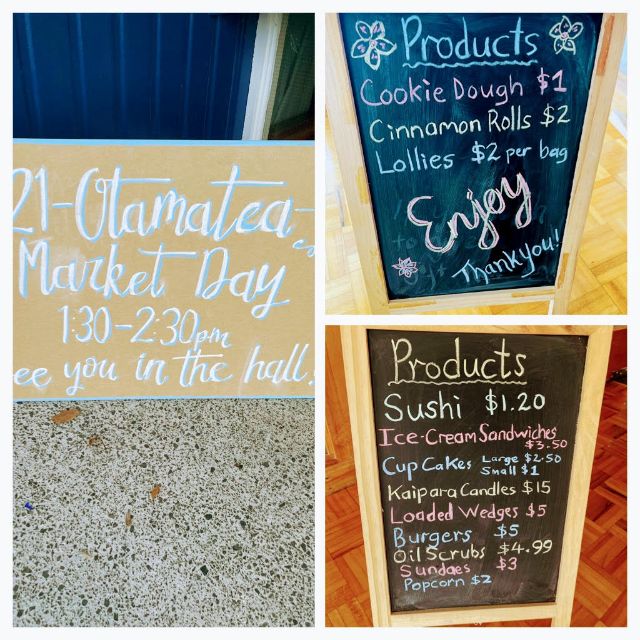 21-Otamatea-
Market Day
1:30-2:30pm
ee you in the hall!
Products
Cookie Dough $1
Cinnamon Rolls $2
Lollies $2 per bag
Enjoy
Thank you!
Products
Sushi $1.20
Ice-Cream Sandwiches
$3.50
Cup Cakes Large $2.50
Small $1
Kaipara Candles $15
Loaded Wedges $5
Burgers $5
Oil Scrubs $4.99
Sundaes $3
Popcorn $2